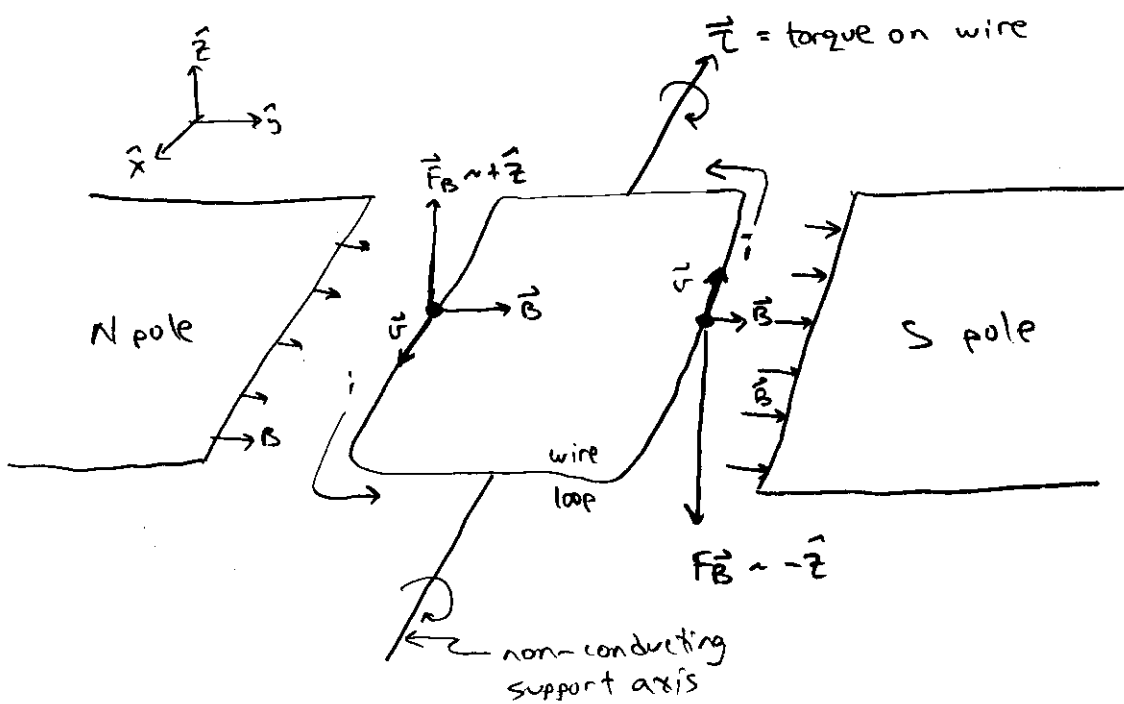 τ⃗ = torque on wire
ẑ
ŷ
x̂
F⃗_B ~ +ẑ
i
v⃗
B⃗
v⃗
B⃗
N pole
S pole
i
B⃗
B
wire
loop
F_B⃗ ~ -ẑ
non-conducting
support axis